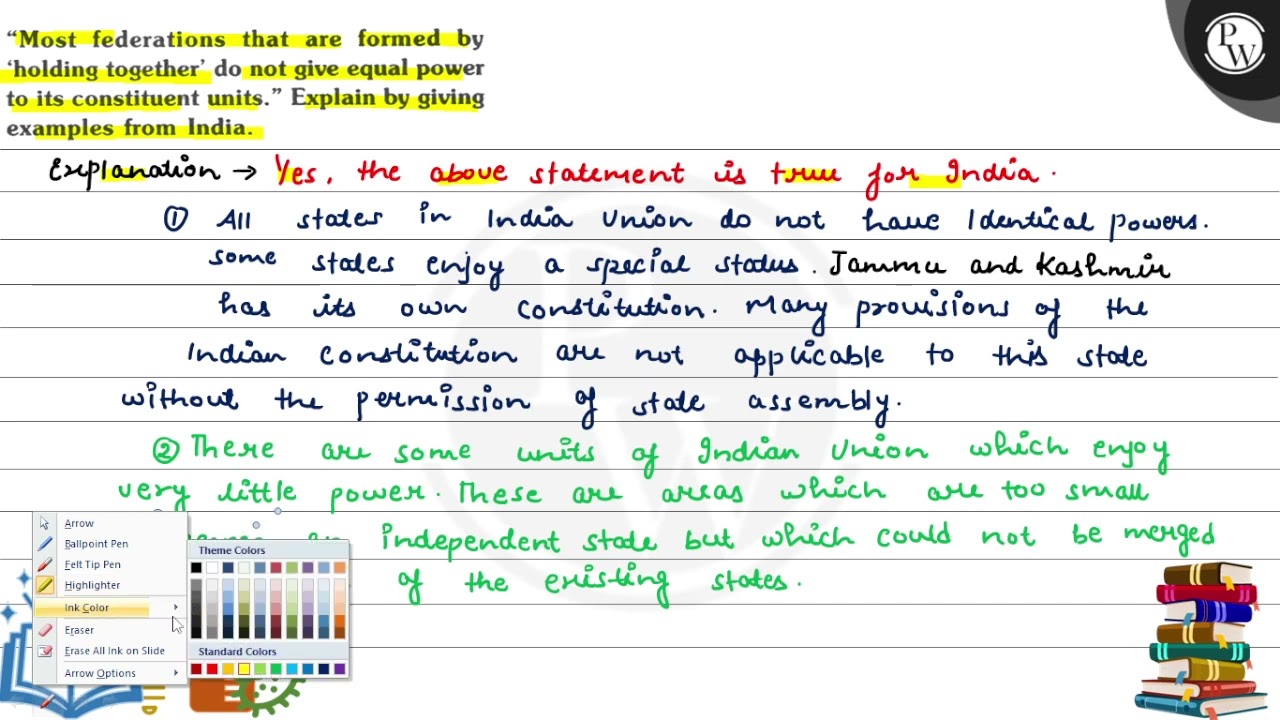 “Most federations that are formed by
‘holding together’ do not give equal power
to its constituent units.” Explain by giving
examples from India.
PW
Explanation → Yes, the above statement is true for India.
① All states in India Union do not have Identical powers.
some states enjoy a special status. Jammu and Kashmir
has its own constitution. Many provisions of the
Indian constitution are not applicable to this state
without the permission of state assembly.
② There are some units of Indian Union which enjoy
very little power. These are areas which are too small
independent state but which could not be merged
of the existing states.
Arrow
Ballpoint Pen
Felt Tip Pen
Highlighter
Ink Color
Eraser
Erase All Ink on Slide
Arrow Options
Theme Colors
Standard Colors